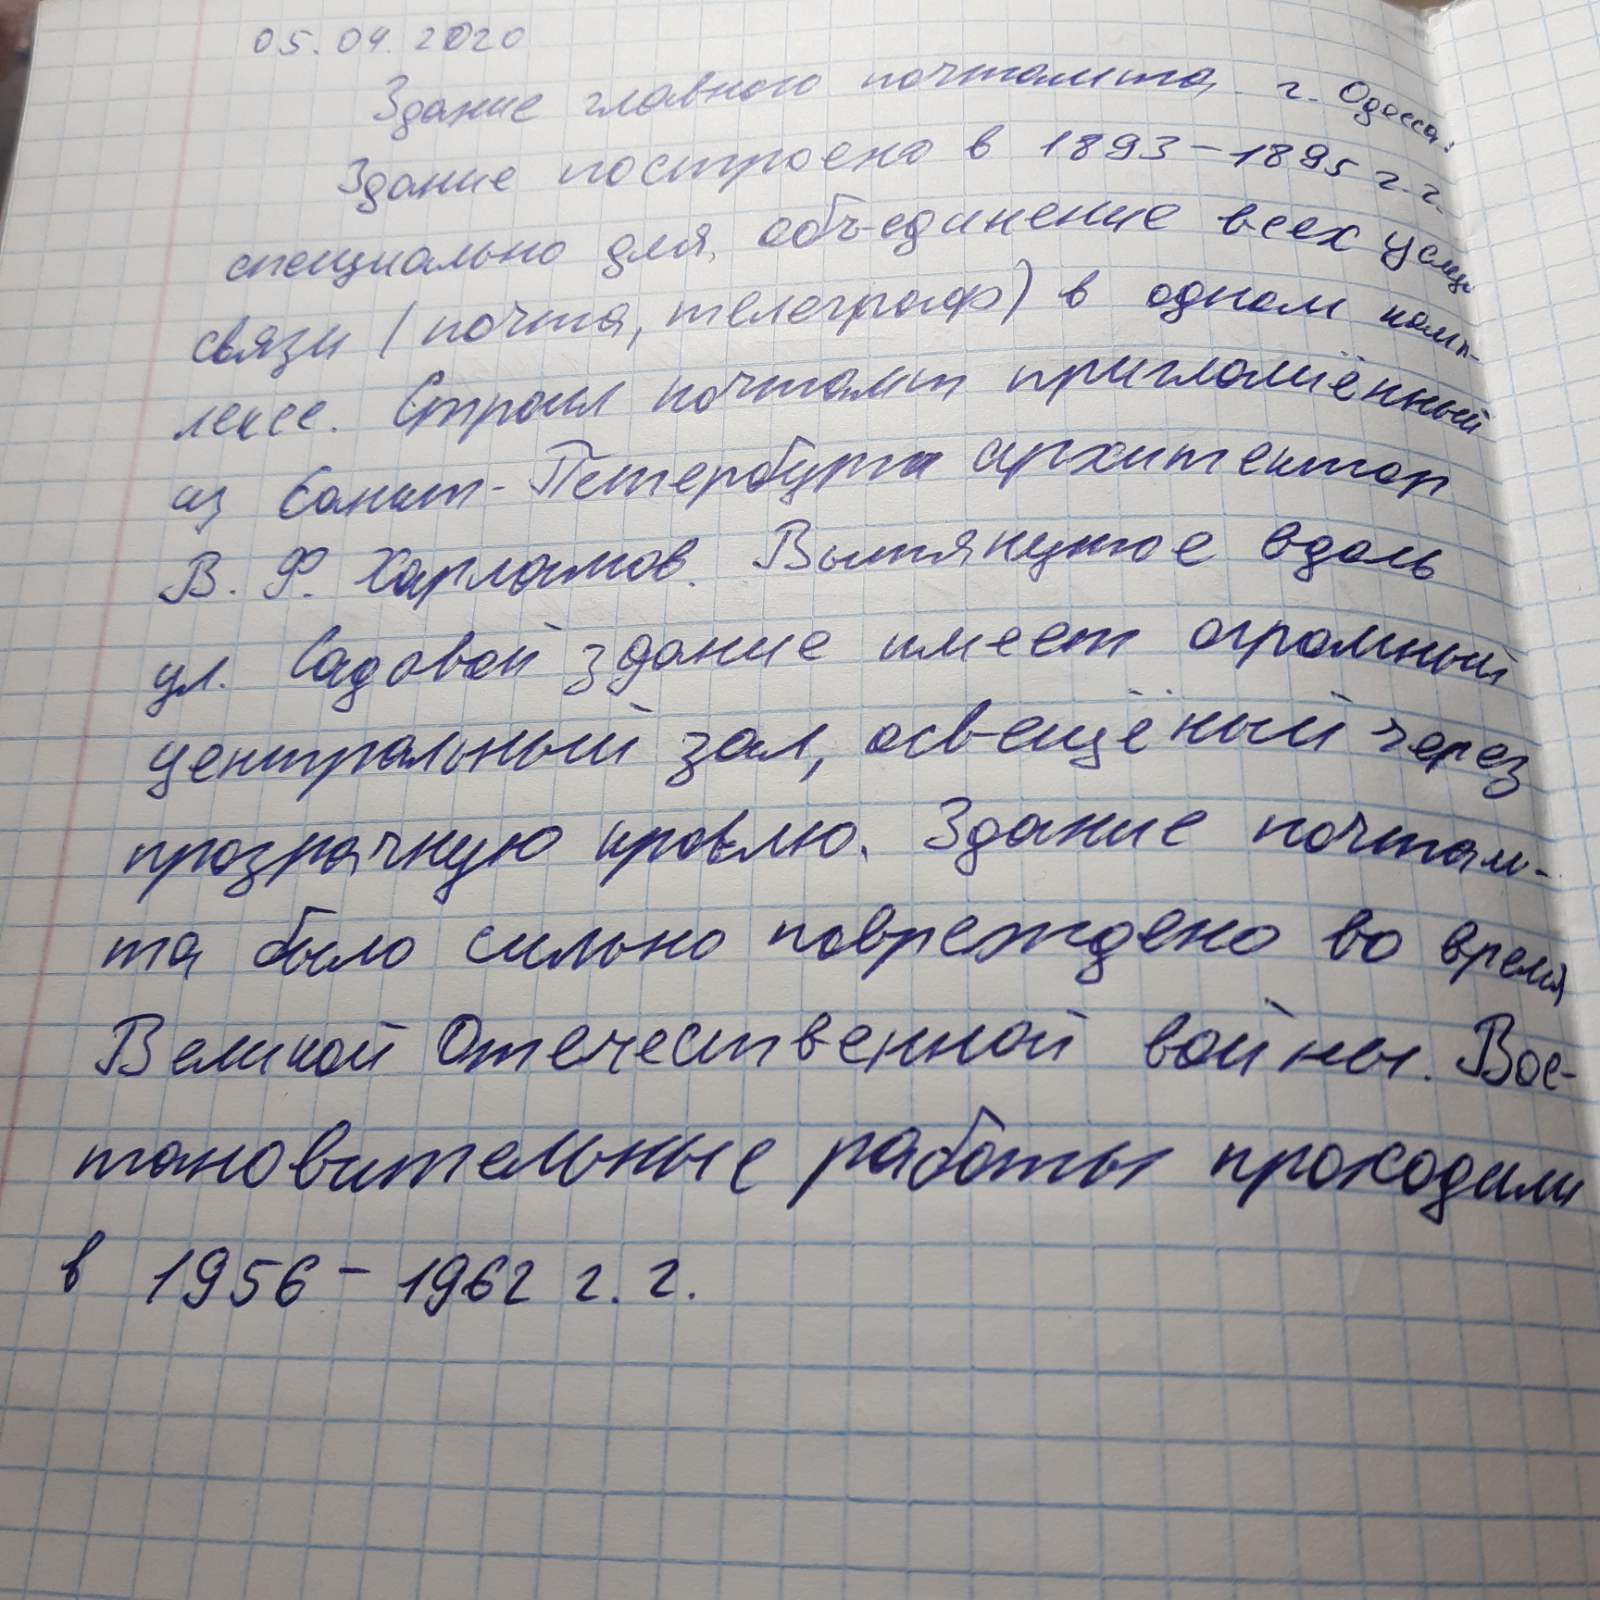 05.04.2020
Здание главного почтамта г. Одесса:
Здание построено в 1893-1895 г.г.
специально для объединение всех услуг
связи (почта, телеграф) в одном комп-
лексе. Строил почтамт приглашённый
из Санкт-Петербурга архитектор
В. Ф. Харламов. Вытянутое вдоль
ул. Садовой здание имеет огромный
центральный зал, освещёный через
прозрачную кровлю. Здание почтам-
та было сильно повреждено во время
Великой Отечественной войны. Вос-
тановительные работы проходили
в 1956-1962 г.г.